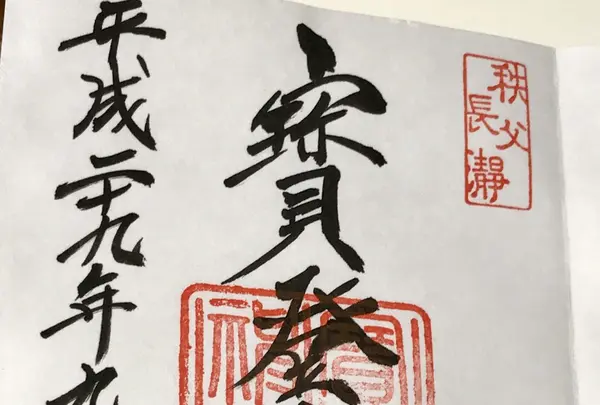 秩父
長瀞
寶登
平成二十九年九